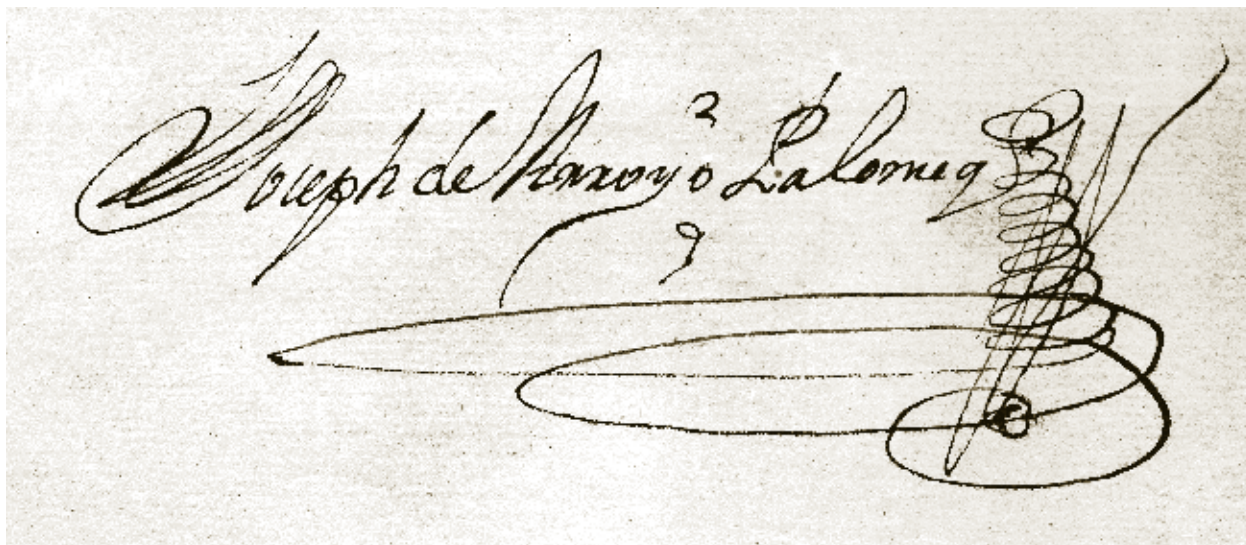 Joseph de Arroyo Palomeq